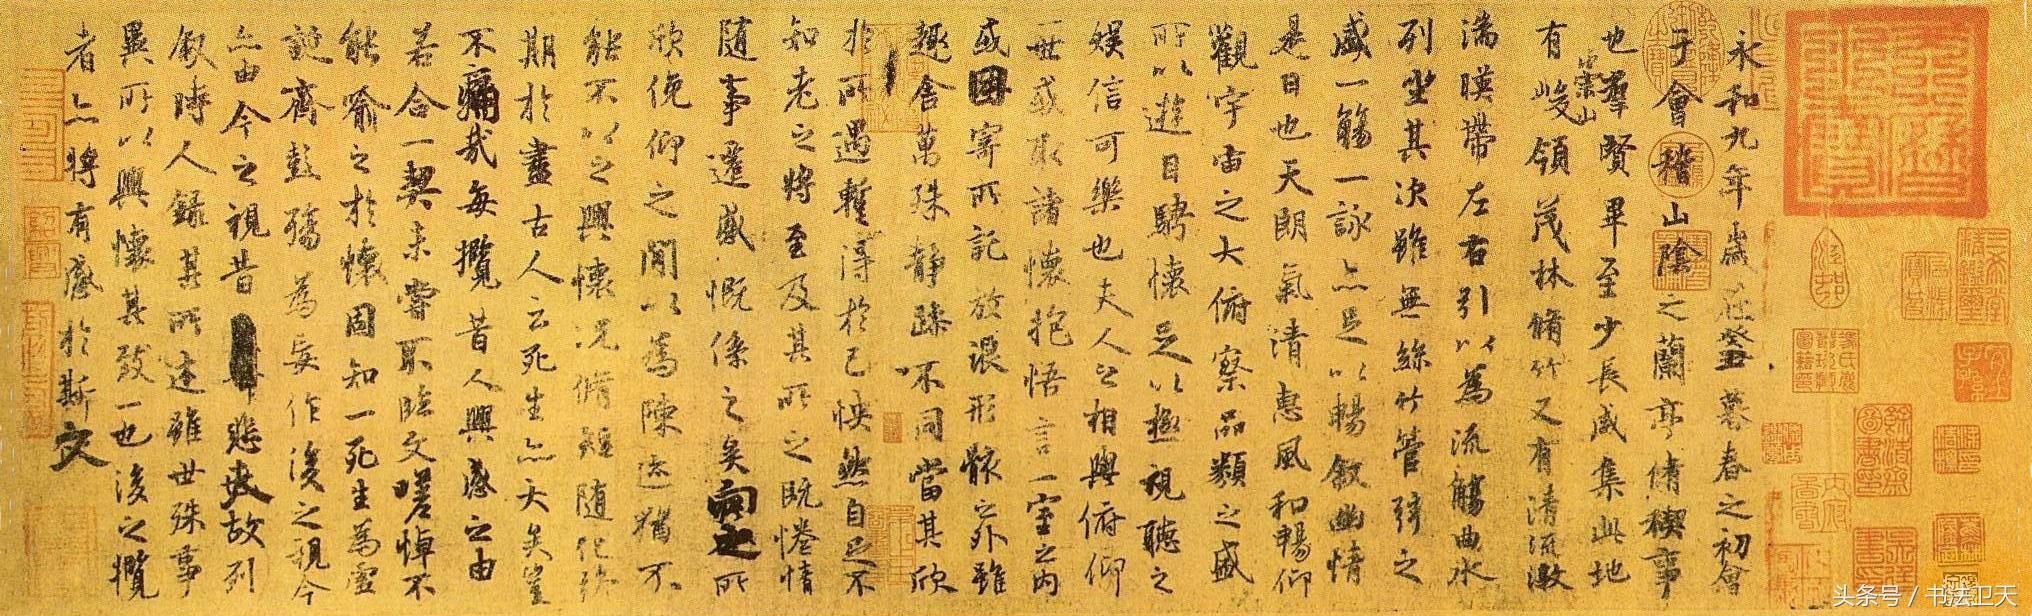 永和九年歲在癸丑暮春之初會
于會稽山陰之蘭亭脩稧事
也羣賢畢至少長咸集此地
有崇山峻領茂林脩竹又有清流激
湍暎帶左右引以為流觴曲水
列坐其次雖無絲竹管弦之
盛一觴一詠亦足以暢敘幽情
是日也天朗氣清惠風和暢仰
觀宇宙之大俯察品類之盛
所以遊目騁懷足以極視聽之
娛信可樂也夫人之相與俯仰
一世或取諸懷抱悟言一室之內
或因寄所託放浪形骸之外雖
趣舍萬殊靜躁不同當其欣
於所遇蹔得於己怏然自足不
知老之將至及其所之既惓情
隨事遷感慨係之矣向之所
欣俛仰之間以為陳迹猶不
能不以之興懷況脩短隨化終
期於盡古人云死生亦大矣豈
不痛哉每攬昔人興感之由
若合一契未嘗不臨文嗟悼不
能喻之於懷固知一死生為虛
誕齊彭殤為妄作後之視今
亦由今之視昔悲夫故列
敘時人錄其所述雖世殊事
異所以興懷其致一也後之攬
者亦將有感於斯文
头条号 / 书法卫天